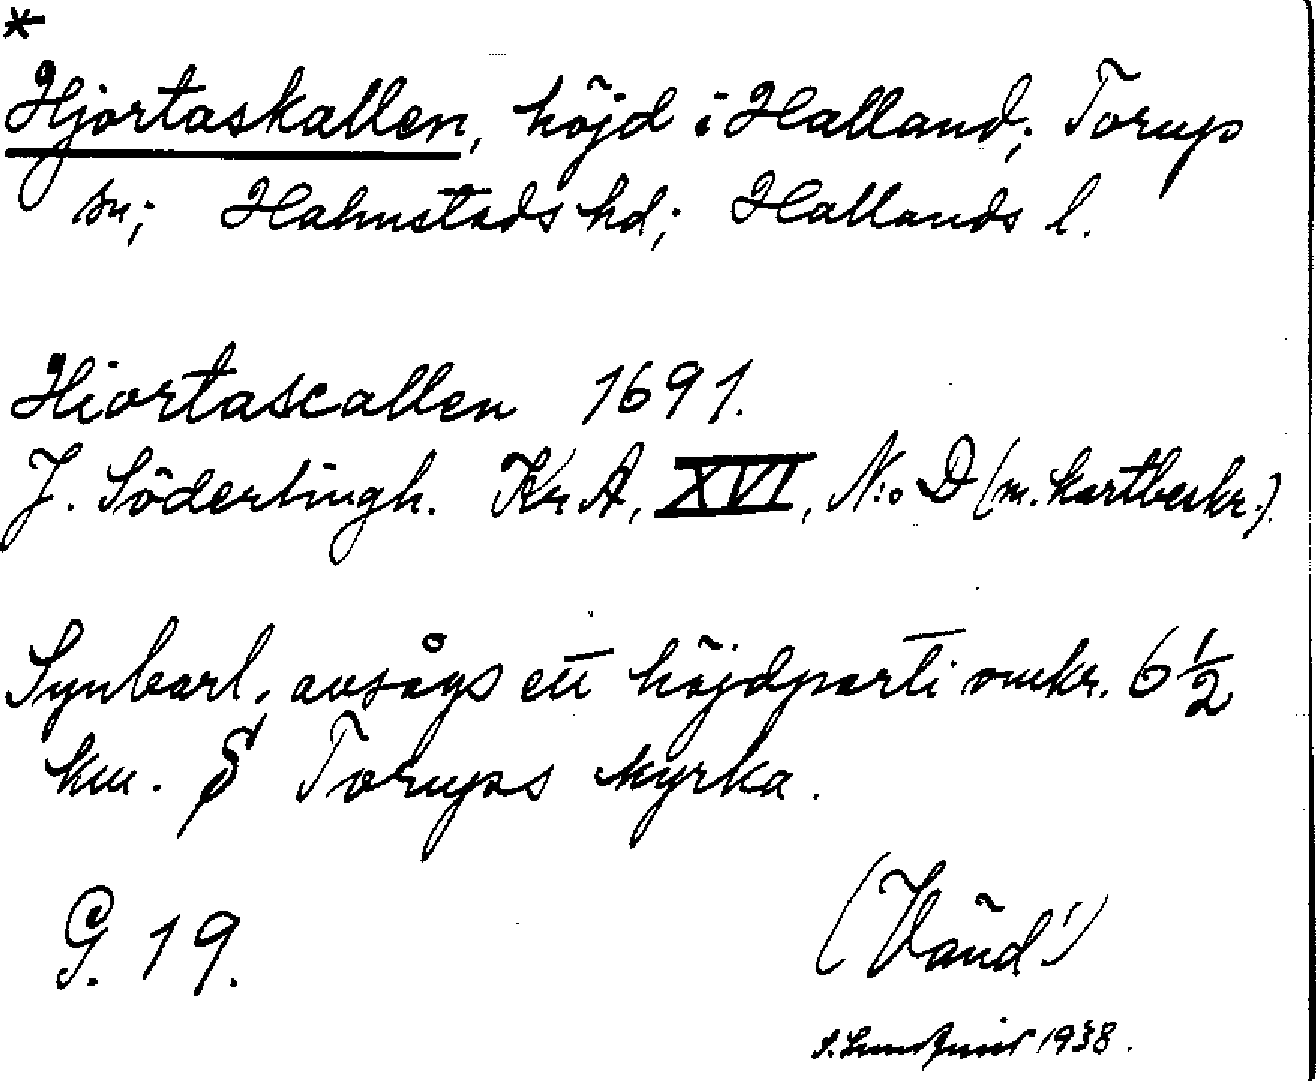 *
Hjortaskallen, höjd i Halland; Torup
sn; Halmstads hd; Hallands l.
Hiortascallen 1691.
J. Söderlingh. Kr. A, XVI, N:o D (m. kartbeskr.)
Synbarl. avsågs ett höjdparti omkr. 6 1/2
km. S Torups kyrka.
G. 19.
(Vänd!)
1938.